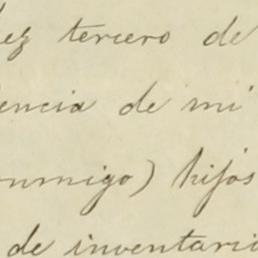 lez tercero de
encia de mi
onmigo) hijos
de inventario